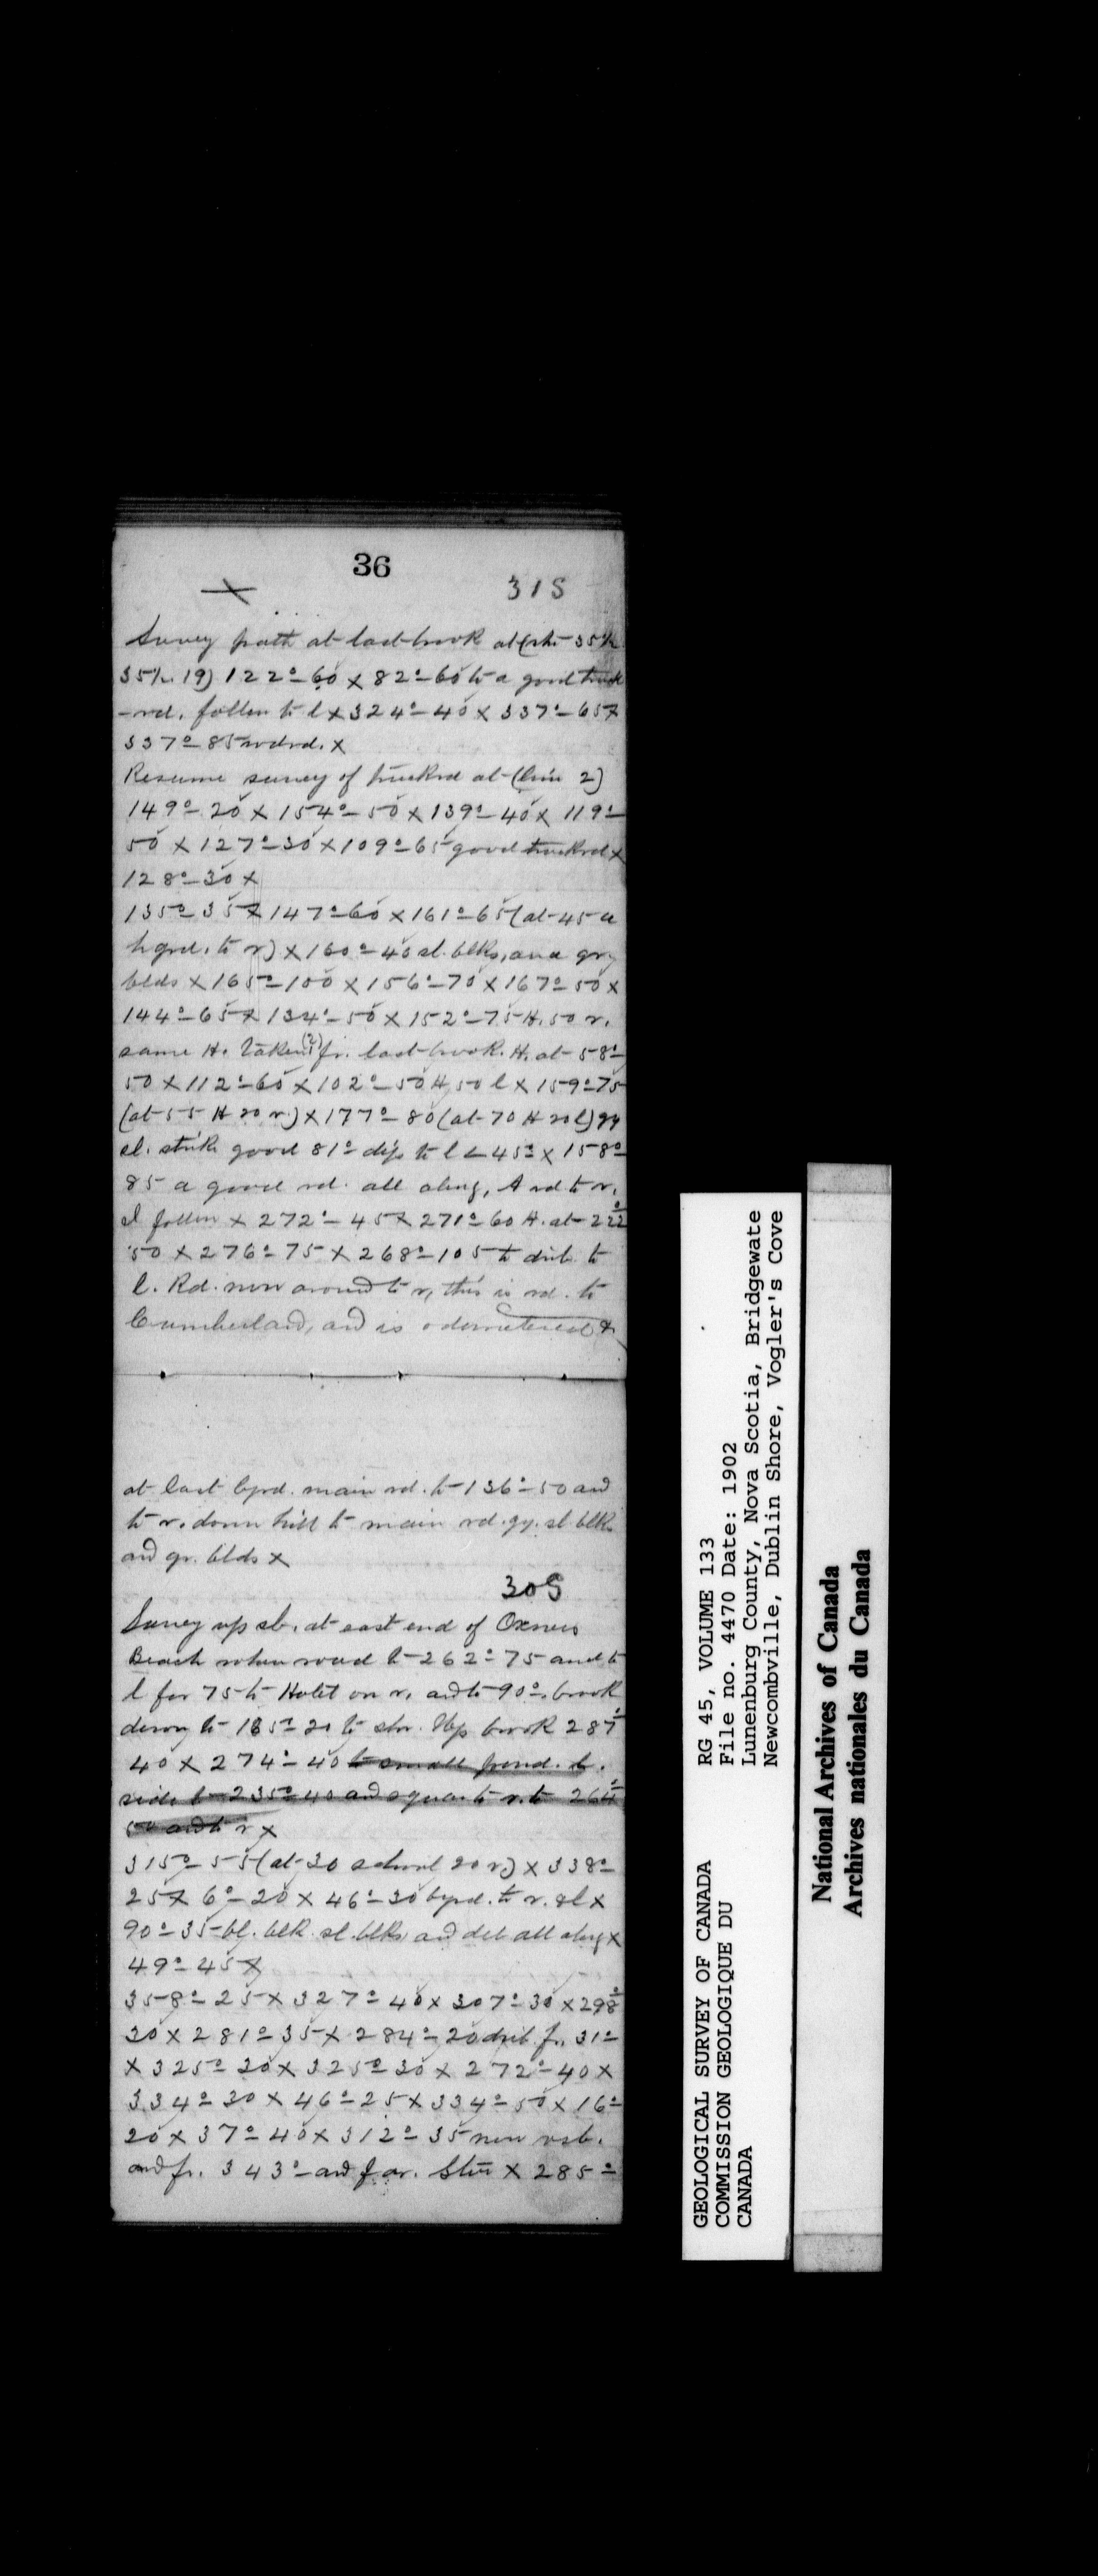 36
X 31S
Survey path at last brook at (sht 35 1/2
35 1/2 19) 122°–60 X 82°–60 to a good truck
–rd. follen to l X 324°–40 X 337°–65 X
337°–85 wdrd. X
Resume survey of truckrd at (line 2)
149°–20 X 154°–50 X 139°–40 X 119°–
50 X 127°–30 X 109°–65 good truckrd X
128°–30 X
135°–35 X 147°–60 X 161°–65 (at 45 a
to r) X 160°–40 sl. blks, and gr
blds X 165°–100 X 156°–70 X 167°–50 X
144°–65 X 134°–50 X 152°–75 H. 50 r.
same H. taken (2) fr. last brook. H. at 58°–
50 X 112°–60 X 102°–50 H 50 l X 159°–75
(at 55 H 20 r.) X 177°–80 (at 70 H 20 l) gy
sl. strike good 81° dip to l < 45° X 158°–
85 a good rd. all along, A rd to r.
I follen X 272°–45 X 271°–60 H. at 222°–
50 X 276°–75 X 268°–105 to dist. to
l. Rd. now around to r, this is rd. to
Cumberland, and is odometered X
at last byrd. main rd. to 136°–50 and
to r. down hill to main rd. gy. sl. blks
and gr. blds X
30S
Survey up sb. at east end of Oxners
Beach when road to 262°–75 and to
l for 75 to Hotel on r. and to 90°, brook
down to 185°–20 to shr. Up brook 287°–
40 X 274°–40 to small pond. to.
side to 235°–40 and to r. to 264°–
50 and to r X
315°–55 (at 30 school 20 r) X 338°–
25 X 6°–20 X 46°–30 byrd. to r. & l X
90°–35 bl. blk. sl. blks, and deb all along X
49°–45 X
358°–25 X 327°–40 X 307°–30 X 298°–
30 X 281°–35 X 284°–20 dist. fr. 31°–
X 325°–20 X 325°–30 X 272°–40 X
334°–30 X 46°–25 X 334°–50 X 16°–
20 X 37°–40 X 312°–35 now
and fr. 343°– and far. X 285°–
GEOLOGICAL SURVEY OF CANADA
COMMISSION GEOLOGIQUE DU
CANADA
RG 45, VOLUME 133
File no. 4470 Date: 1902
Lunenburg County, Nova Scotia, Bridgewate
Newcombville, Dublin Shore, Vogler's Cove
National Archives of Canada
Archives nationales du Canada